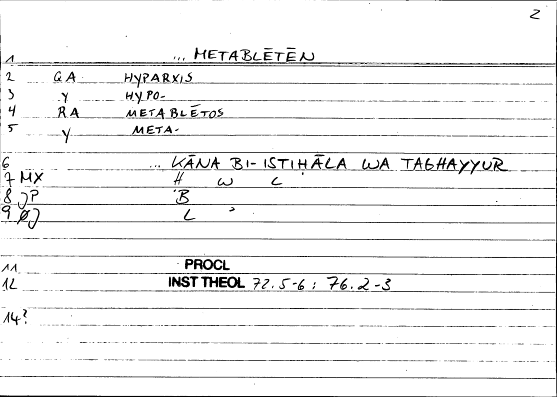 2
1 ... METABLĒTĒN
2 GA HYPARXIS
3 Y HYPO-
4 RA METABLĒTOS
5 Y META-
6 ... KĀNA BI-ISTIHĀLA WA TAGHAYYUR
7 MX H W L
8 JP B
9 ØJ L ʾ
11 PROCL
12 INST THEOL 72.5-6 : 76.2-3
14?